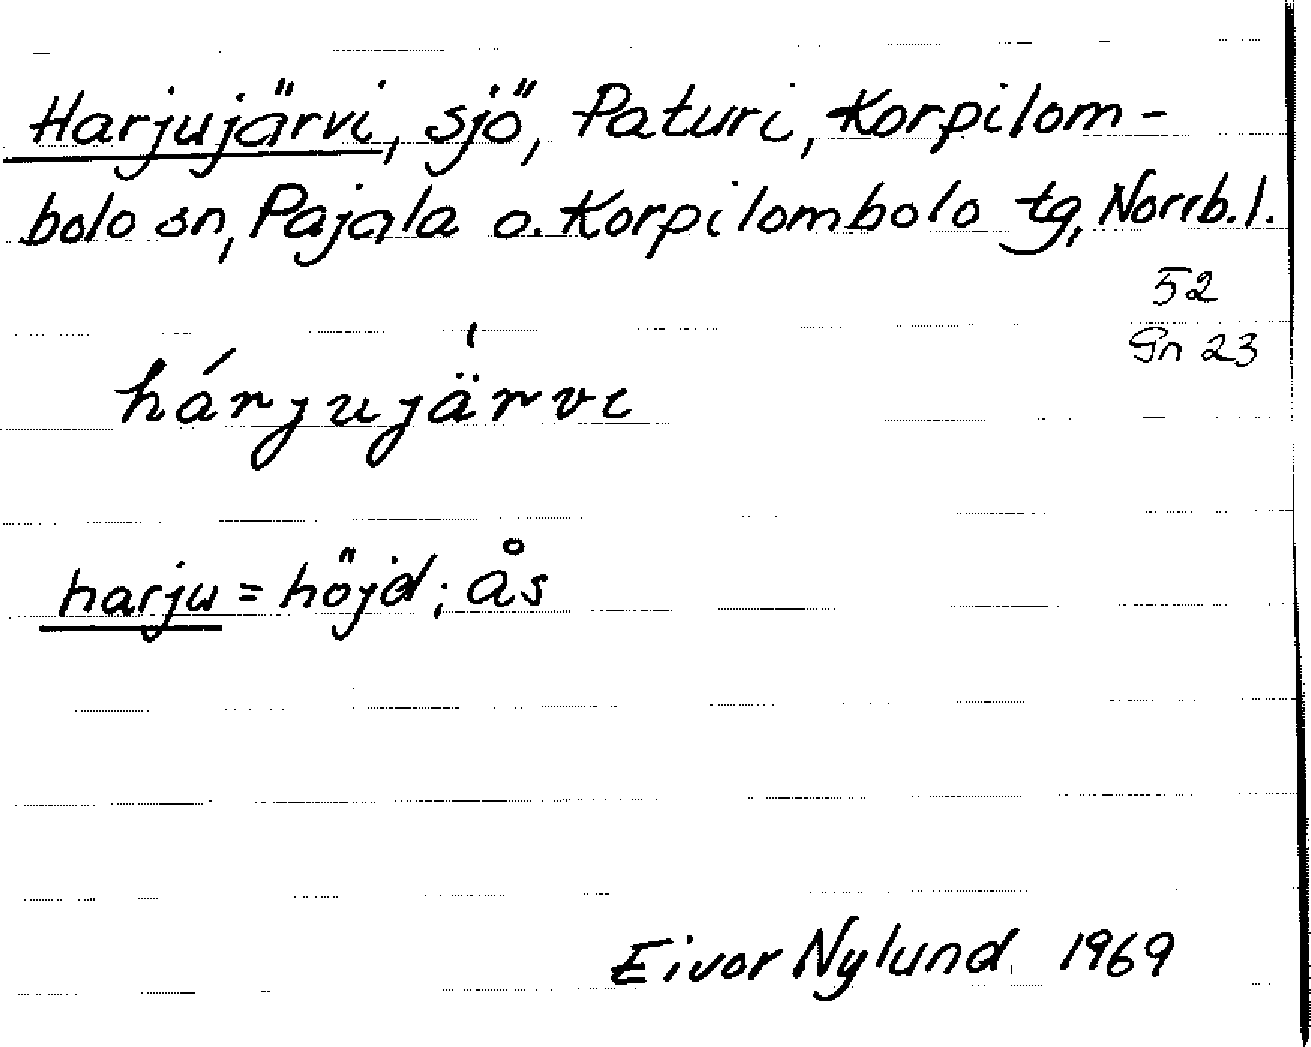 Harjujärvi, sjö, Paturi, Korpilom-
bolo sn, Pajala o. Korpilombolo tg, Norrb. l.
52
Gn 23
hárjujä̀rvi
harju = höjd; ås
Eivor Nylund 1969